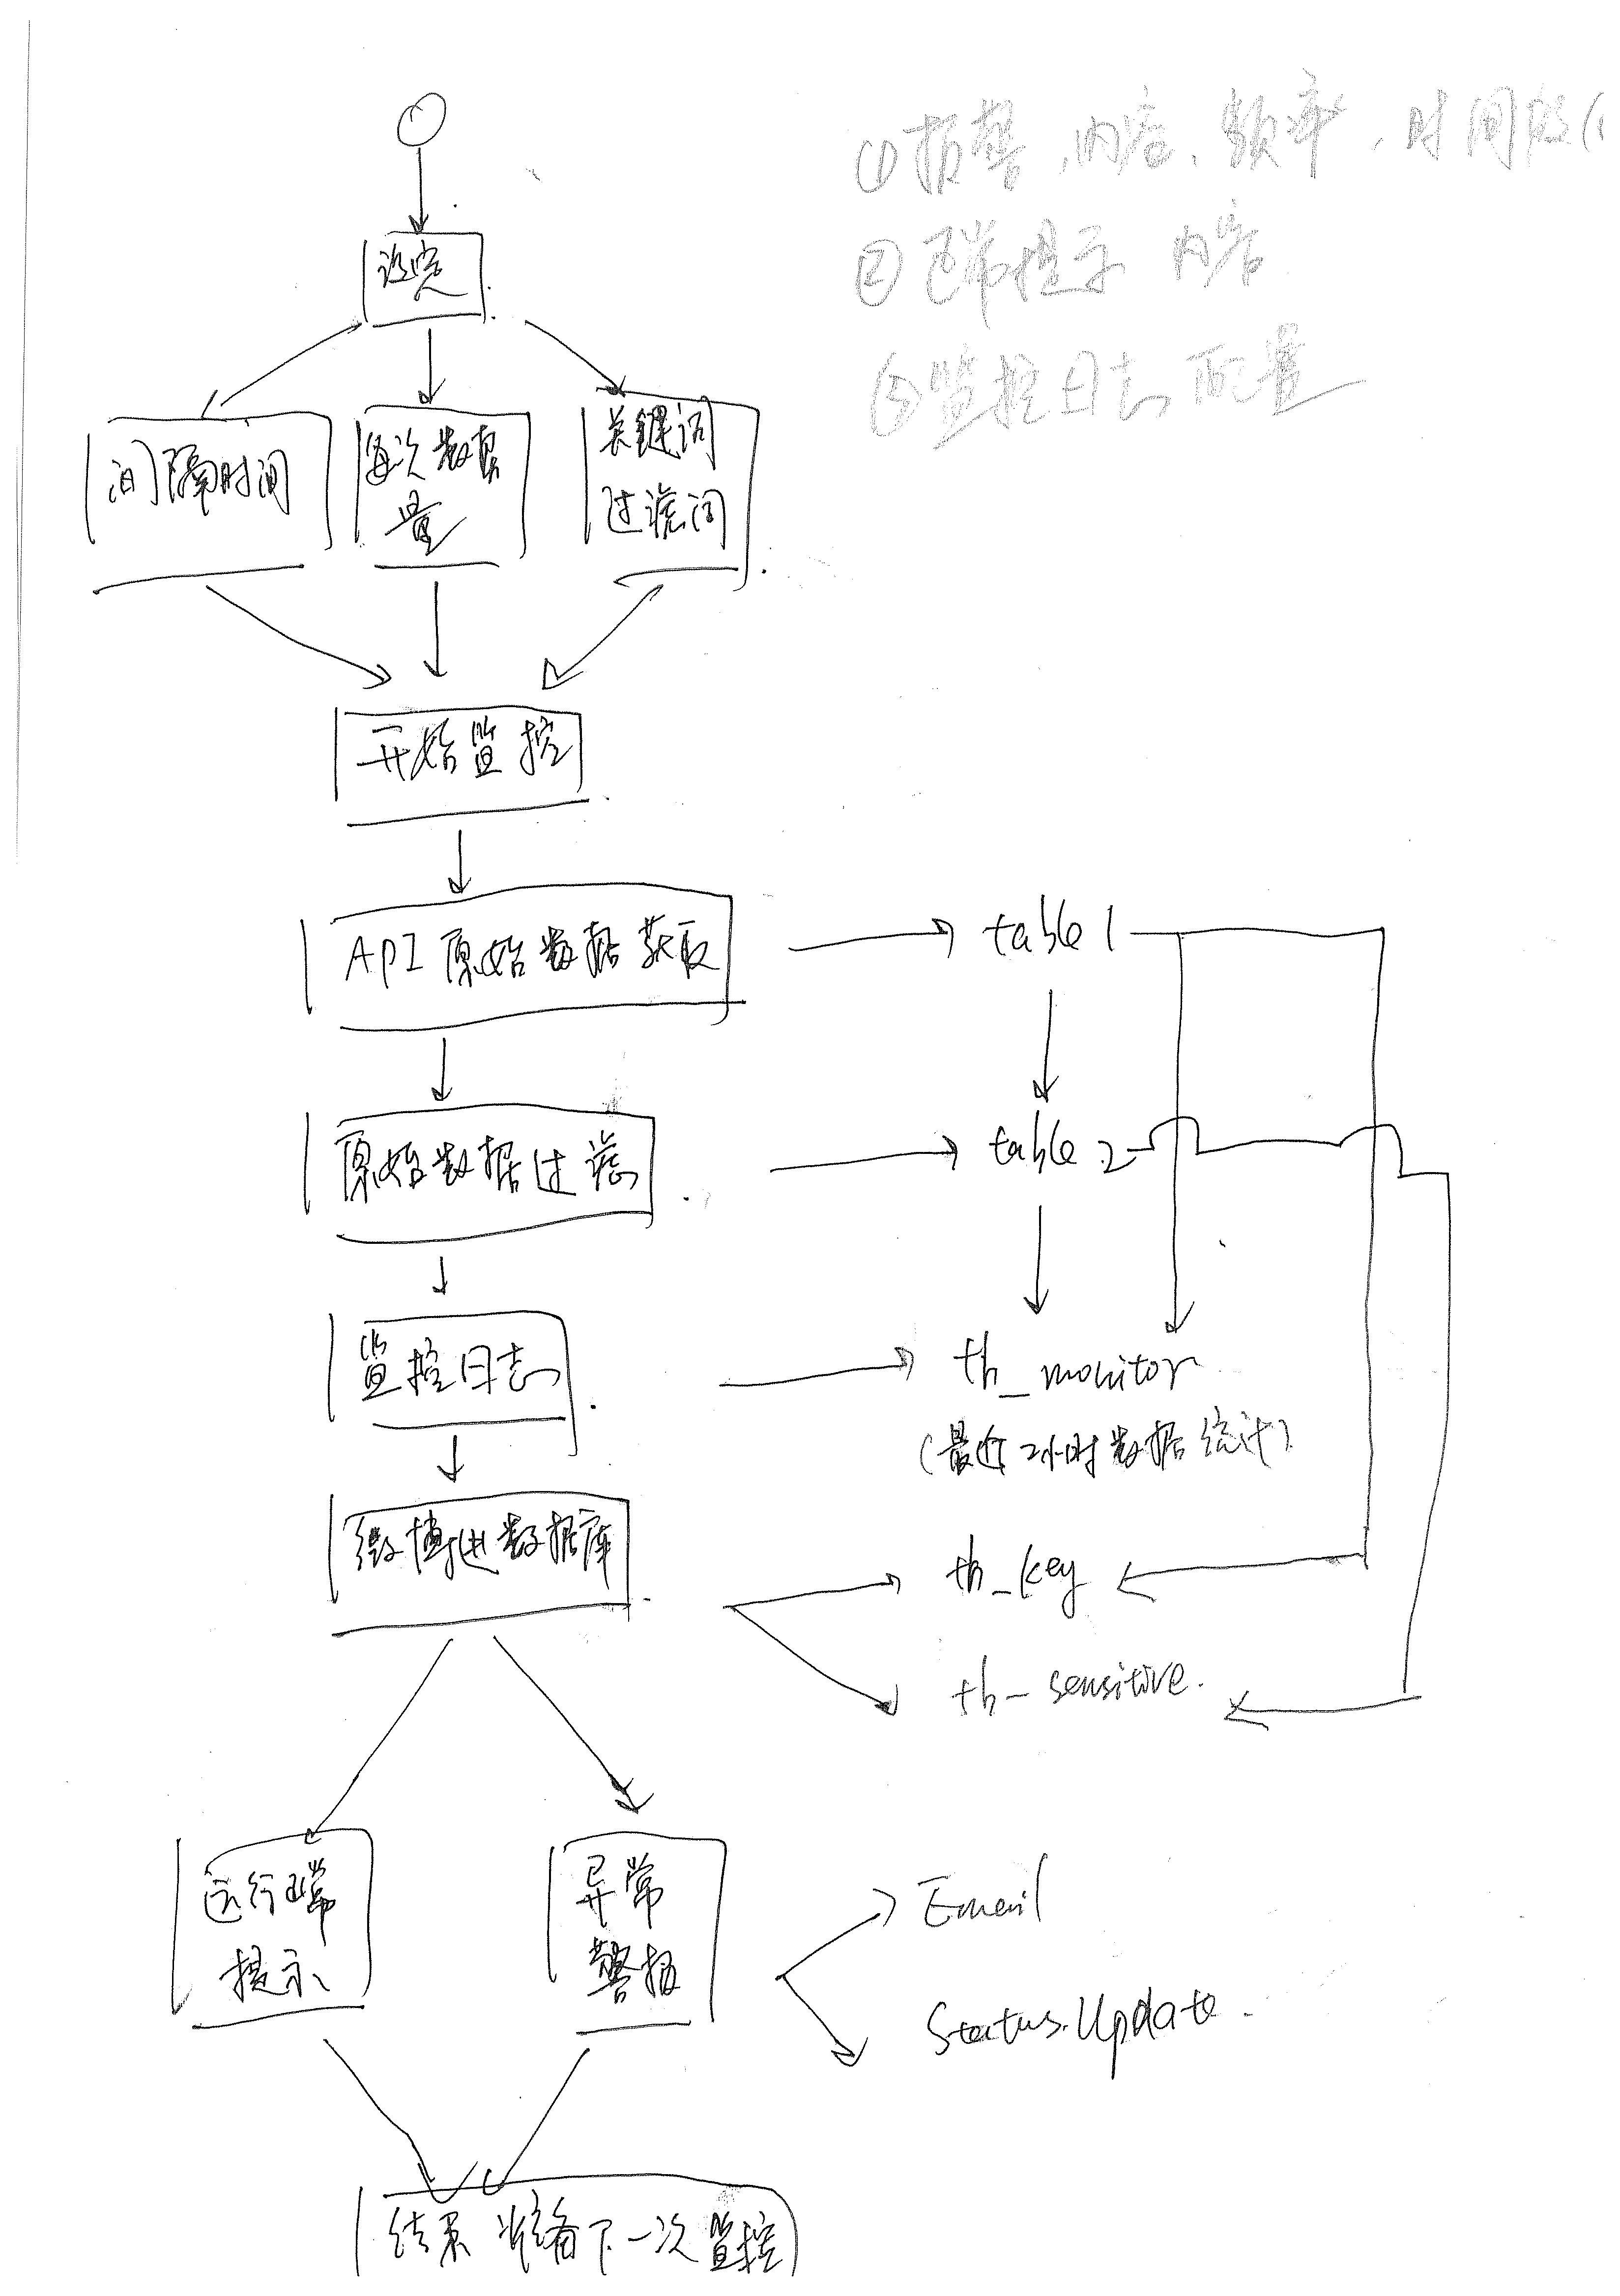 ①报警、内容、频率、时间段(
②正常提示 内容
③监控日志配置
设定
间隔时间
每次数据
量
关键词
过滤词
开始监控
API原始数据获取
table 1
原始数据过滤
table 2
监控日志
tb_monitor
(最近2小时数据统计)
微博进数据库
tb_key
tb-sensitive.
运行正常
提示
异常
警报
Email
Status.Update.
结束 准备下一次监控